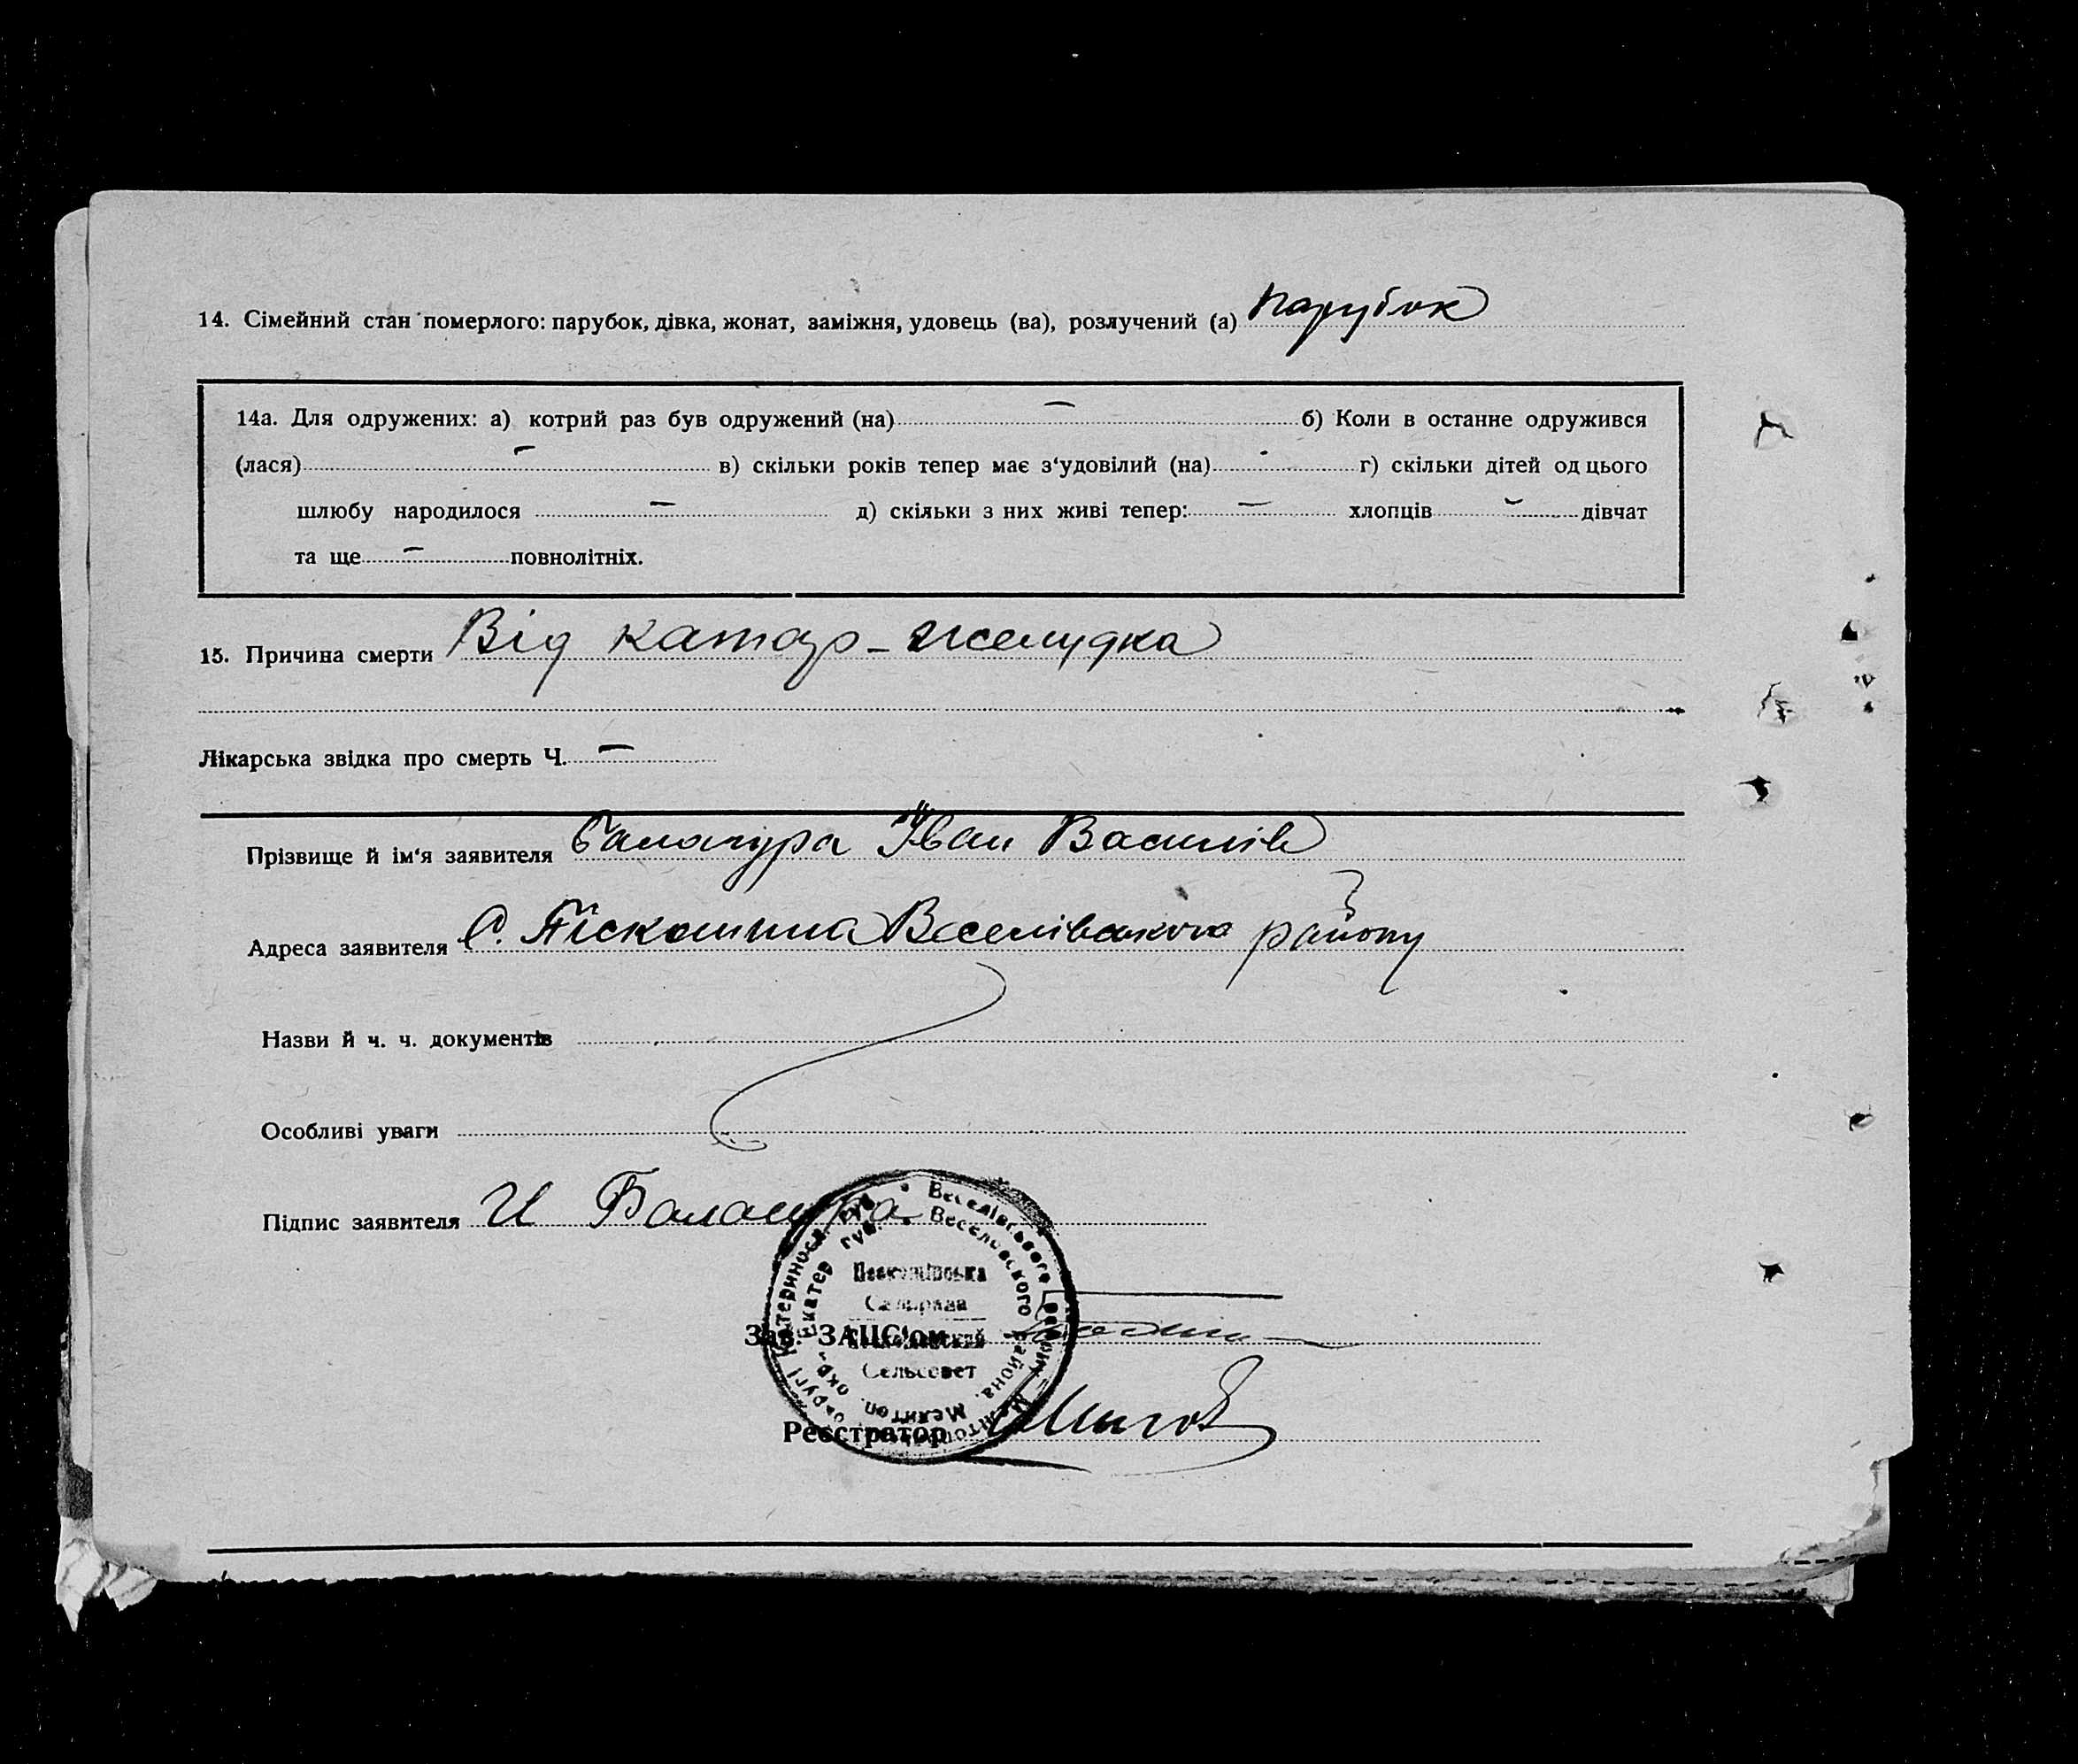 14. Сімейний стан померлого: парубок, дівка, жонат, заміжня, удовець (ва), розлучений (а) парубок
14а. Для одружених: а) котрий раз був одружений (на) — б) Коли в останне одружився
(лася) — в) скільки років тепер має з‘удовілий (на) г) скільки дітей од цього
шлюбу народилося — д) скільки з них живі тепер: — хлопців — дівчат
та ще — повнолітніх.
15. Причина смерти Від катар-желудка
Лікарська звідка про смерть Ч. —
Прізвище й ім‘я заявителя Іван Василів
Адреса заявителя С. Піскошина Веселівського району
Назви й ч. ч. документів
Особливі уваги
Підпис заявителя И
Веселівського
Веселовского района.
Мелитоп. окр. Екатер. губ.
Сельсовет
Зав. ЗАПС'ом
Реєстратор